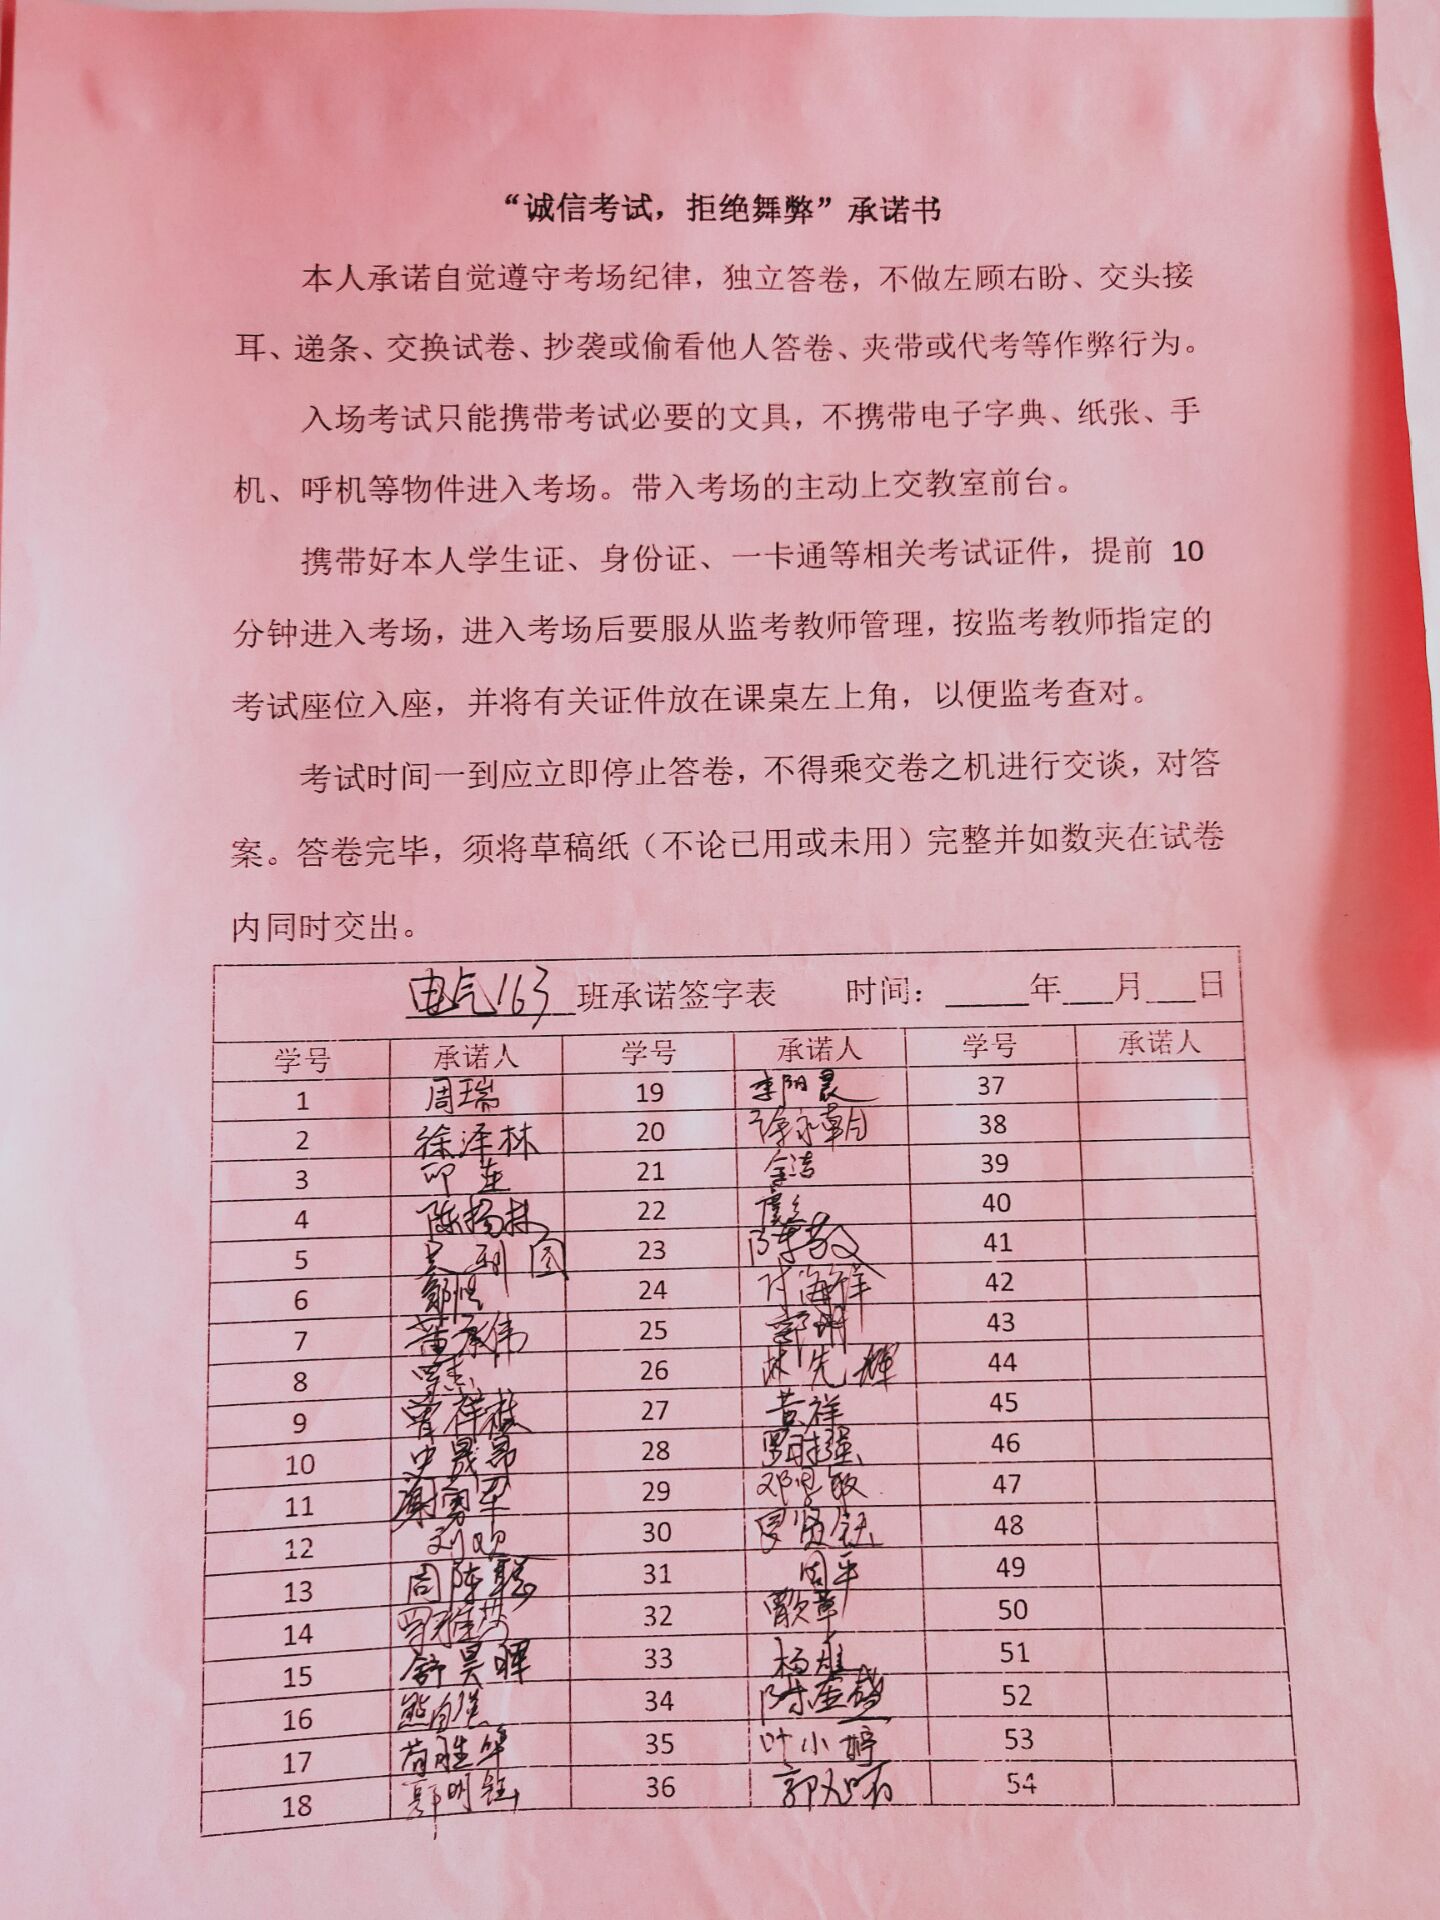 “诚信考试，拒绝舞弊”承诺书
本人承诺自觉遵守考场纪律，独立答卷，不做左顾右盼、交头接
耳、递条、交换试卷、抄袭或偷看他人答卷、夹带或代考等作弊行为。
入场考试只能携带考试必要的文具，不携带电子字典、纸张、手
机、呼机等物件进入考场。带入考场的主动上交教室前台。
携带好本人学生证、身份证、一卡通等相关考试证件，提前 10
分钟进入考场，进入考场后要服从监考教师管理，按监考教师指定的
考试座位入座，并将有关证件放在课桌左上角，以便监考查对。
考试时间一到应立即停止答卷，不得乘交卷之机进行交谈，对答
案。答卷完毕，须将草稿纸（不论已用或未用）完整并如数夹在试卷
内同时交出。
电气163 班承诺签字表 时间：_____年___月___日
学号 承诺人 学号 承诺人 学号 承诺人
1 周瑞 19 李阳晨 37
2 徐泽林 20 38
3 21 金洁 39
4 陈杨林 22 40
5 23 陈敬 41
6 24 付海洋 42
7 黄承伟 25 43
8 罗杰 26 林先辉 44
9 曾祥 27 黄祥 45
10 史晟昂 28 罗 强 46
11 谢勇军 29 47
12 刘欢 30 罗贤钰 48
13 周陈聪 31 周平 49
14 32 50
15 舒昊晖 33 杨雄 51
16 熊自强 34 52
17 胜华 35 叶小婷 53
18 郑明钰 36 54